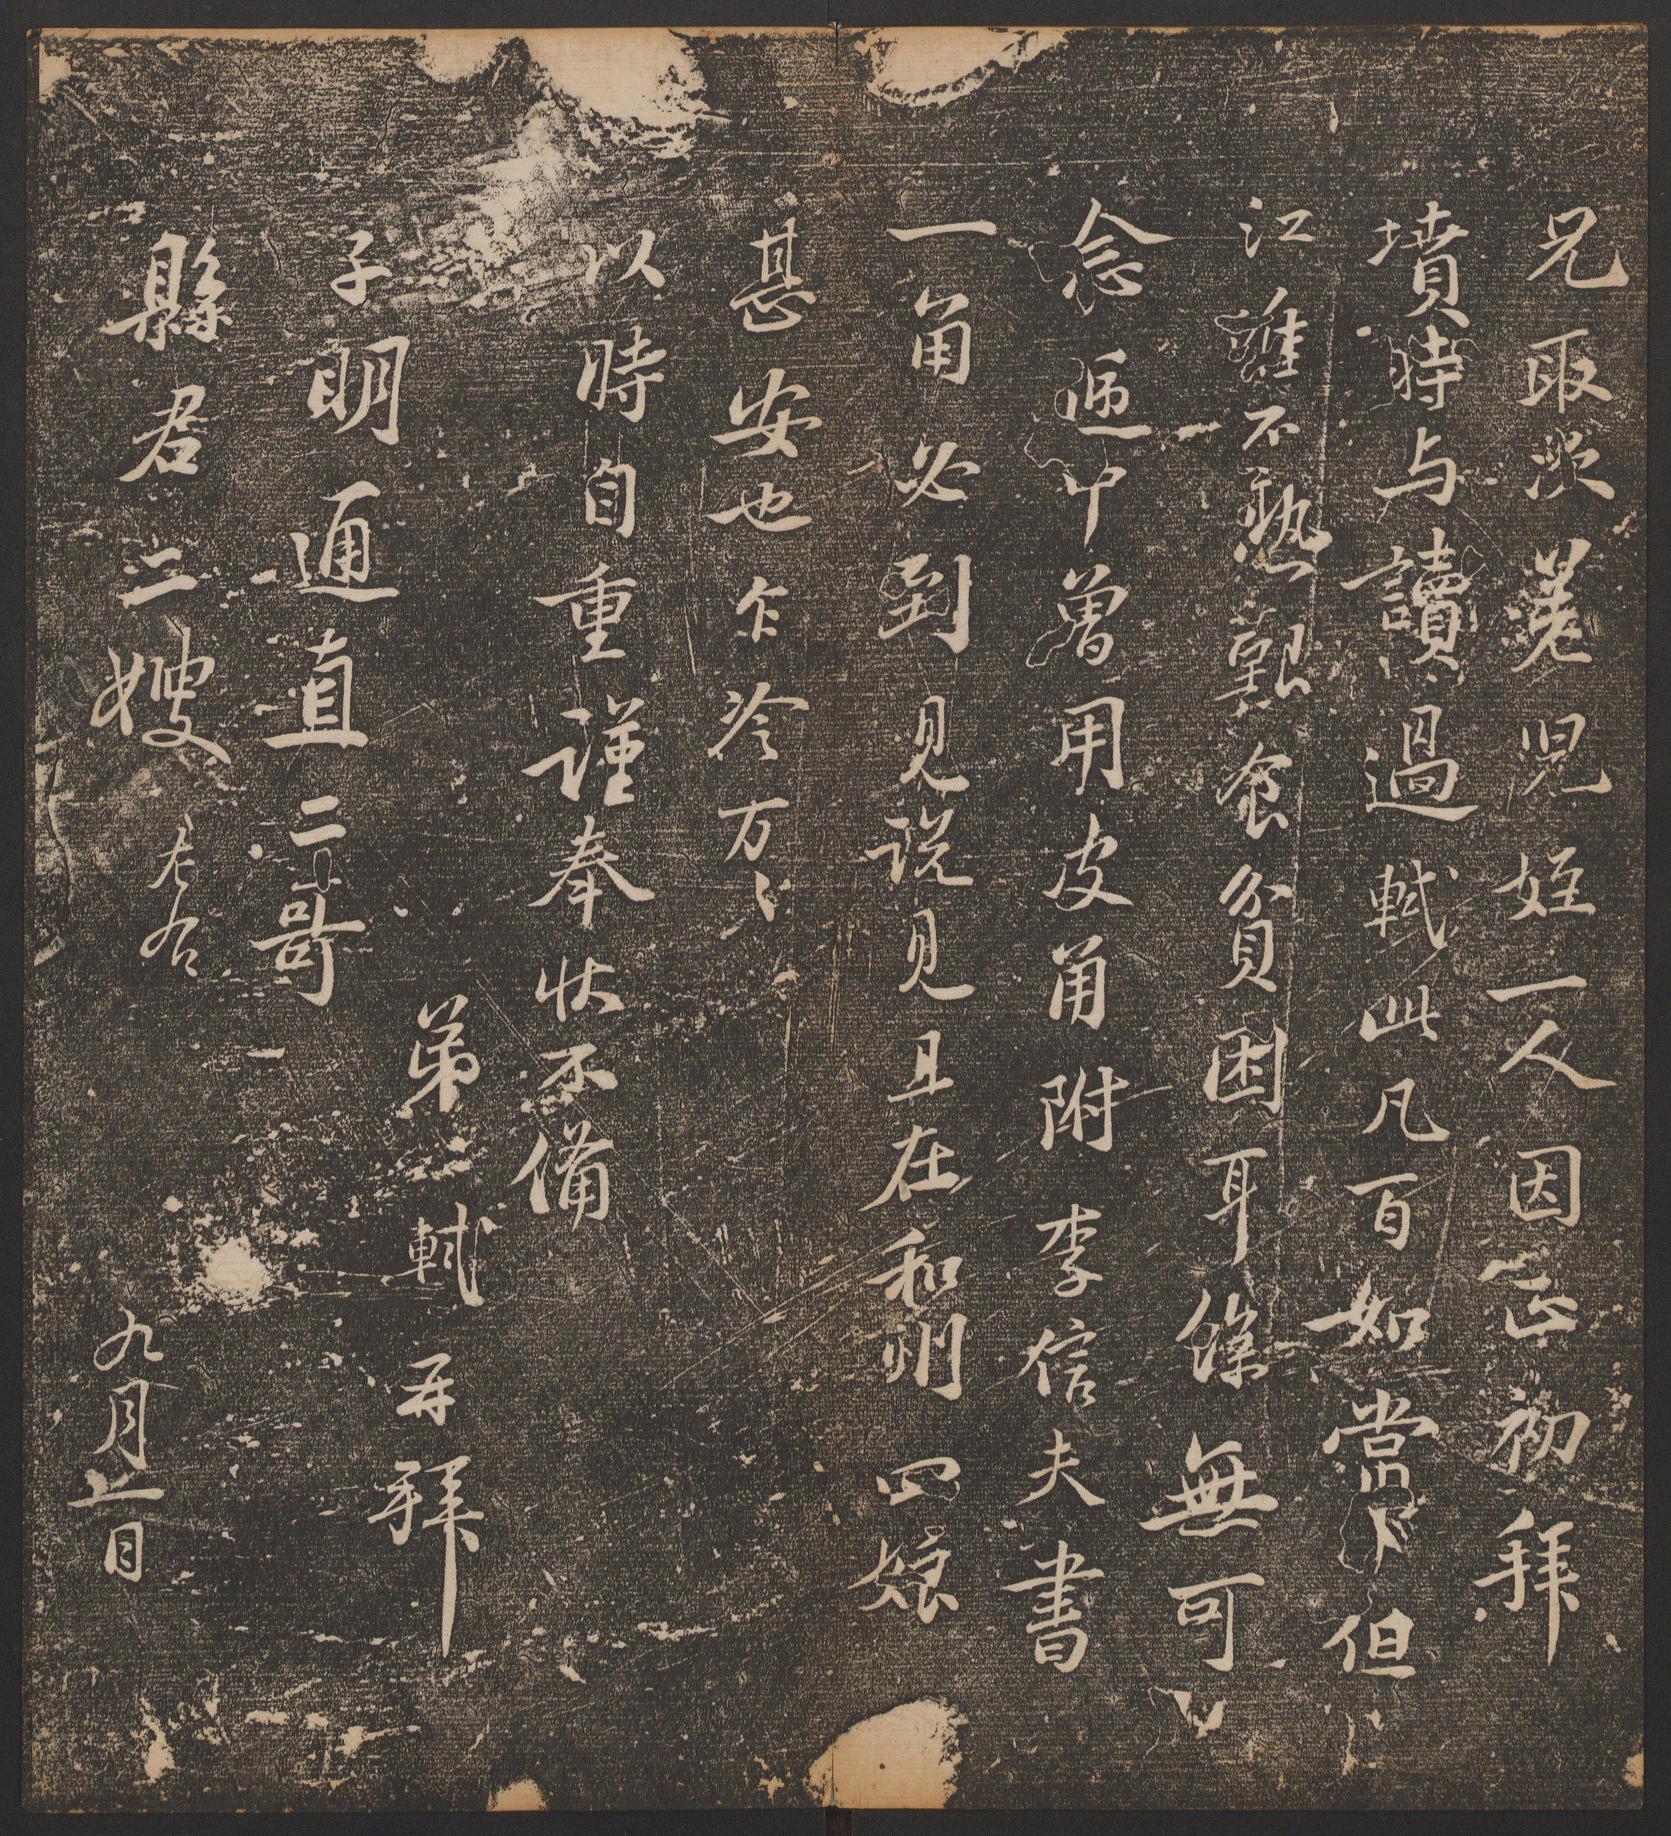 兄取次差兒姪一人因正初拜
墳時与讀過軾此凡百如常但
江淮不熟艱食貧困耳餘無可
念逓中曾用皮角附李信夫書
一角必到見説見且在和州四娘
甚安也乍冷万〻
以時自重謹奉狀不備
弟軾再拜
子明通直二哥
縣君二嫂左右 九月廿一日